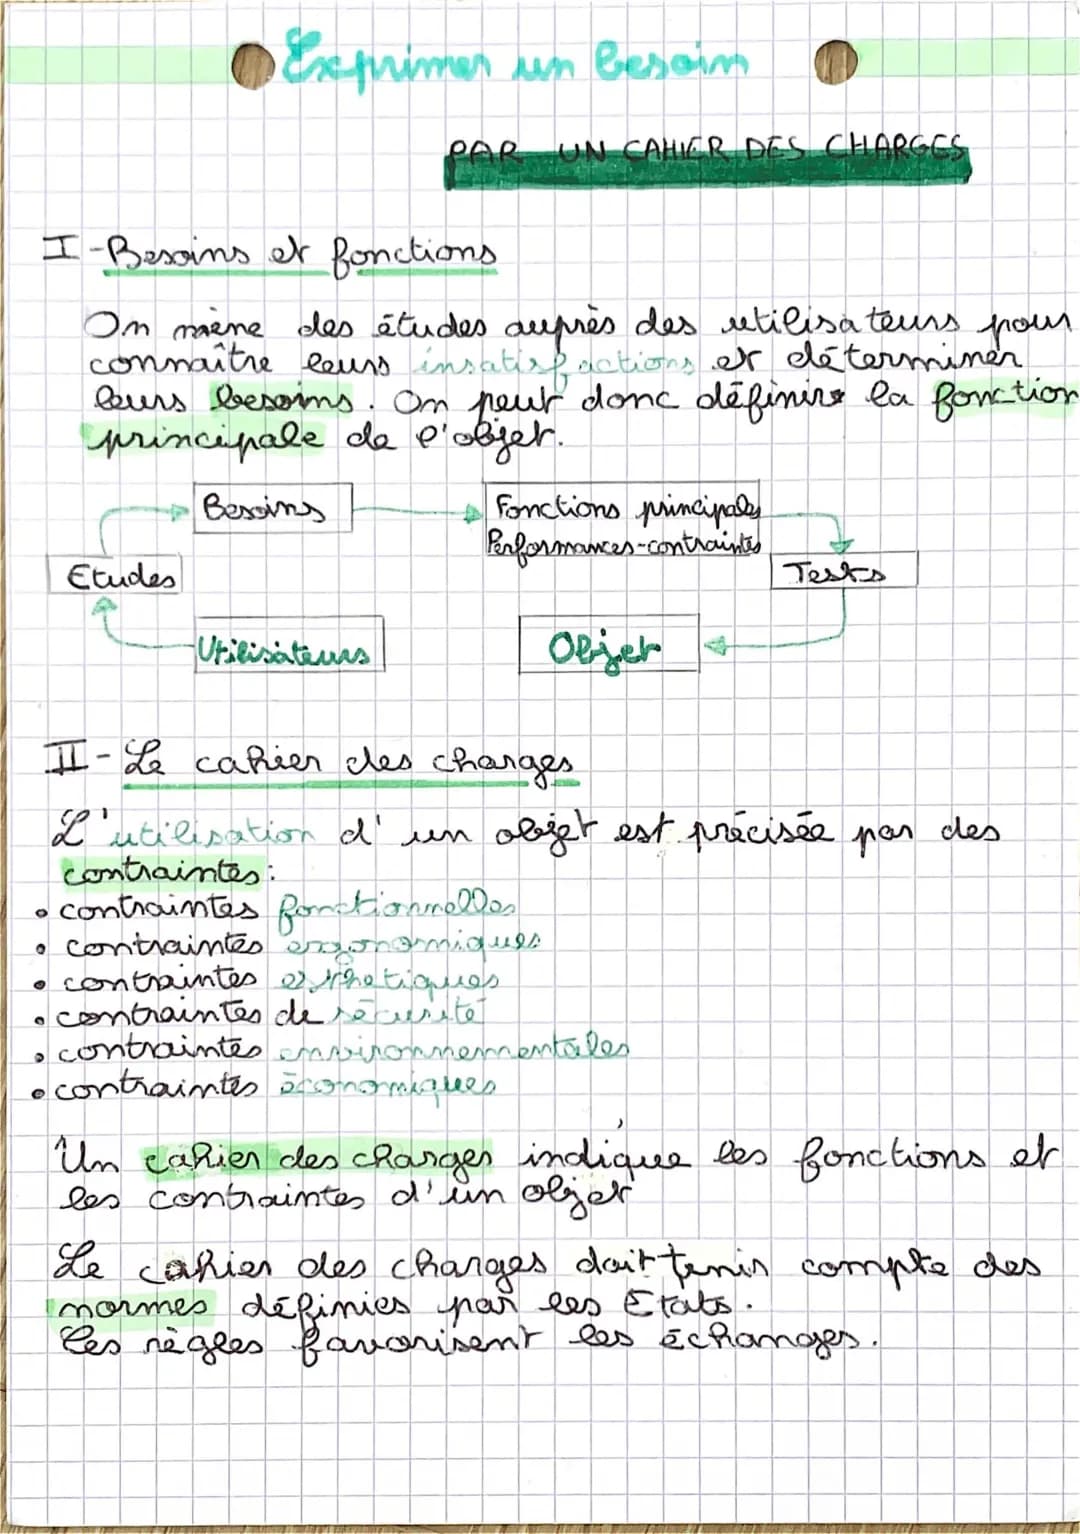 Exprimer un besoin
PAR UN CAHIER DES CHARGES
I-Besoins et fonctions
On mène des études auprès des utilisateurs pour
connaître leurs insatisfactions et déterminer
leurs besoins. On peut donc définir la fonction
principale de l'objet.
Besoins
Fonctions principales
Performances-contraintes
Etudes
Tests
Utilisateurs
Objet
II-Le cahier des charges
L'utilisation d'un objet est précisée par des
contraintes:
• contraintes fonctionnelles
• contraintes ergonomiques
• contraintes esthetiques
• contraintes de sécurité
• contraintes environnementales
• contraintes économiques
Un cahier des charges indique les fonctions et
les contraintes d'un objet
Le cahier des charges doit tenir compte des
normes définies par les Etats.
Ces règles favorisent les échanges.